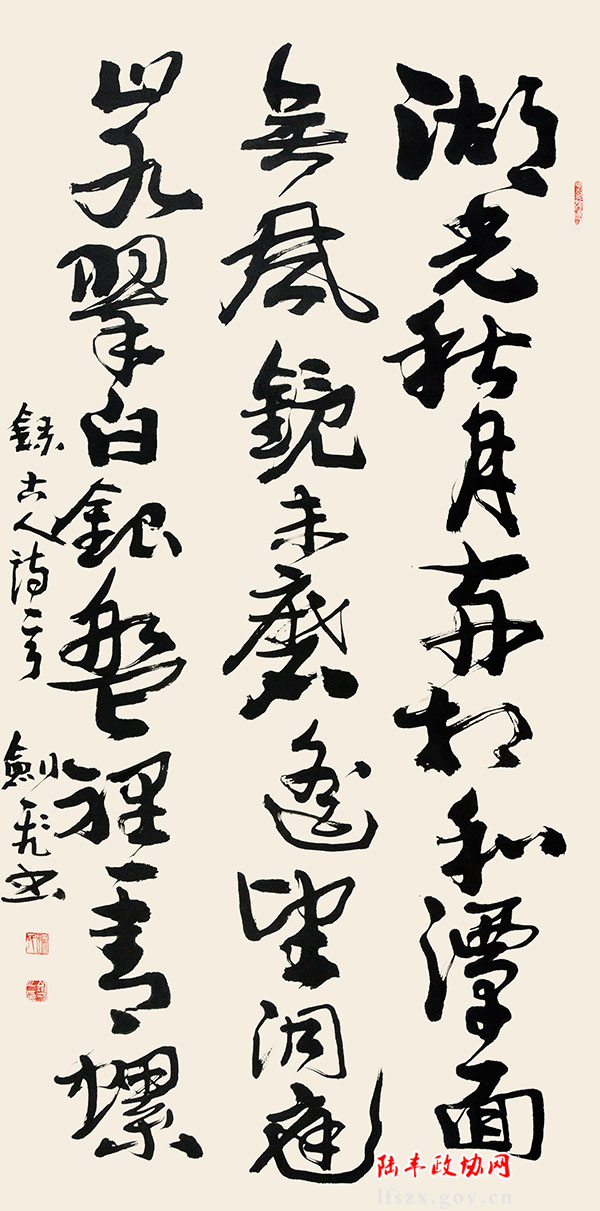 湖光秋月兩相和潭面
無風鏡未磨遙望洞庭
山水翠白銀盤裡一青螺
錄古人詩一首
劍書
陆丰政协网
lfszx.gov.cn